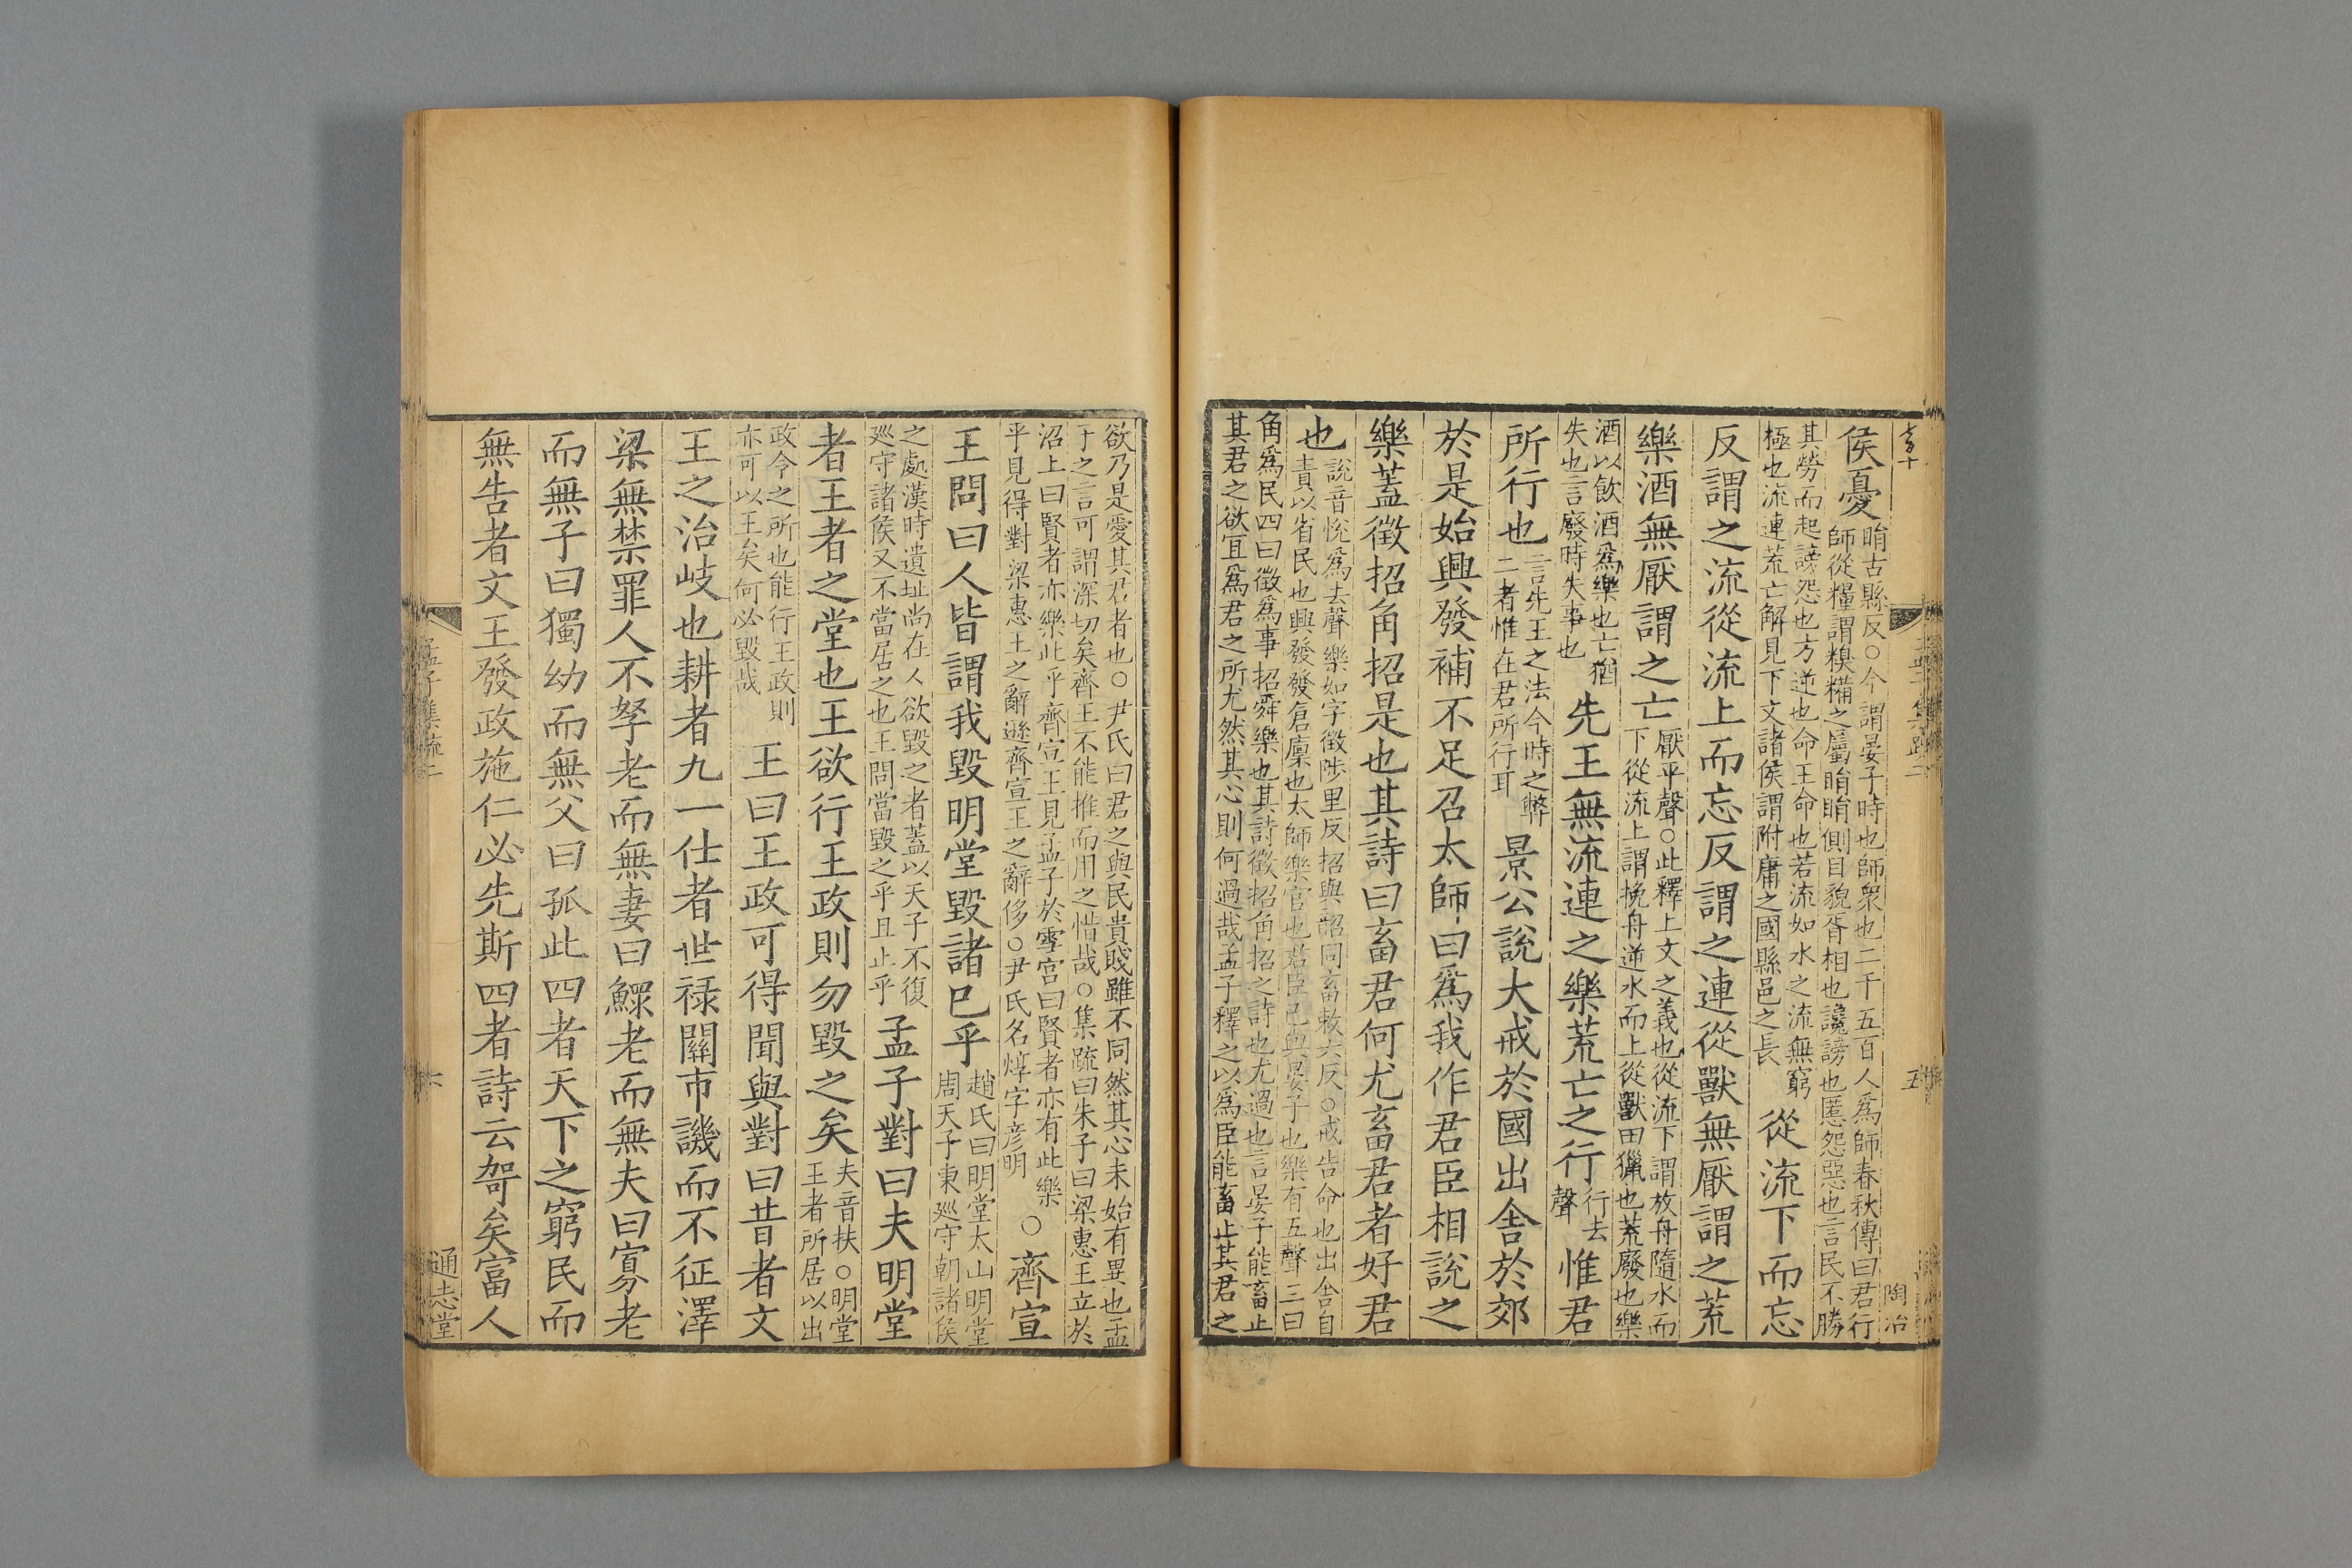 侯憂睊古縣反○今謂晏子時也師衆也二千五百人爲師春秋傳曰君行
師從糧謂糗糒之屬睊睊側目貌胥相也讒謗也匿怨惡也言民不勝
其勞而起謗怨也方逆也命王命也若流如水之流無窮
極也流連荒亡解見下文諸侯謂附庸之國縣邑之長
從流下而忘
反謂之流從流上而忘反謂之連從獸無厭謂之荒
樂酒無厭謂之亡厭平聲○此釋上文之義也從流下謂放舟隨水而
下從流上謂挽舟逆水而上從獸田獵也荒廢也樂
酒以飲酒爲樂也亡猶
失也言廢時失事也
先王無流連之樂荒亡之行行去
聲
惟君
所行也言先王之法今時之弊
二者惟在君所行耳
景公說大戒於國出舍於郊
於是始興發補不足召太師曰爲我作君臣相說之
樂蓋徵招角招是也其詩曰畜君何尤畜君者好君
也說音悅爲去聲樂如字徵陟里反招與韶同畜敕六反○戒告命也出舍自
責以省民也興發發倉廩也太師樂官也君臣己與晏子也樂有五聲三曰
角爲民四曰徵爲事招舜樂也其詩徵招角招之詩也尤過也言晏子能畜止
其君之欲宜爲君之所尤然其心則何過哉孟子釋之以爲臣能畜止其君之
五
陶冶
欲乃是愛其君者也○尹氏曰君之與民貴賤雖不同然其心未始有異也孟
子之言可謂深切矣齊王不能推而用之惜哉○集疏曰朱子曰梁惠王立於
沼上曰賢者亦樂此乎齊宣王見孟子於雪宮曰賢者亦有此樂
乎見得對梁惠王之辭遜齊宣王之辭侈○尹氏名焞字彦明
○齊宣
王問曰人皆謂我毀明堂毀諸已乎趙氏曰明堂太山明堂
周天子東廵守朝諸侯
之處漢時遺址尚在人欲毀之者蓋以天子不復
廵守諸侯又不當居之也王問當毀之乎且止乎
孟子對曰夫明堂
者王者之堂也王欲行王政則勿毀之矣夫音扶○明堂
王者所居以出
政令之所也能行王政則
亦可以王矣何必毀哉
王曰王政可得聞與對曰昔者文
王之治岐也耕者九一仕者世禄關市譏而不征澤
梁無禁罪人不孥老而無妻曰鰥老而無夫曰寡老
而無子曰獨幼而無父曰孤此四者天下之窮民而
無告者文王發政施仁必先斯四者詩云哿矣富人
孟子集疏二
六
通志堂